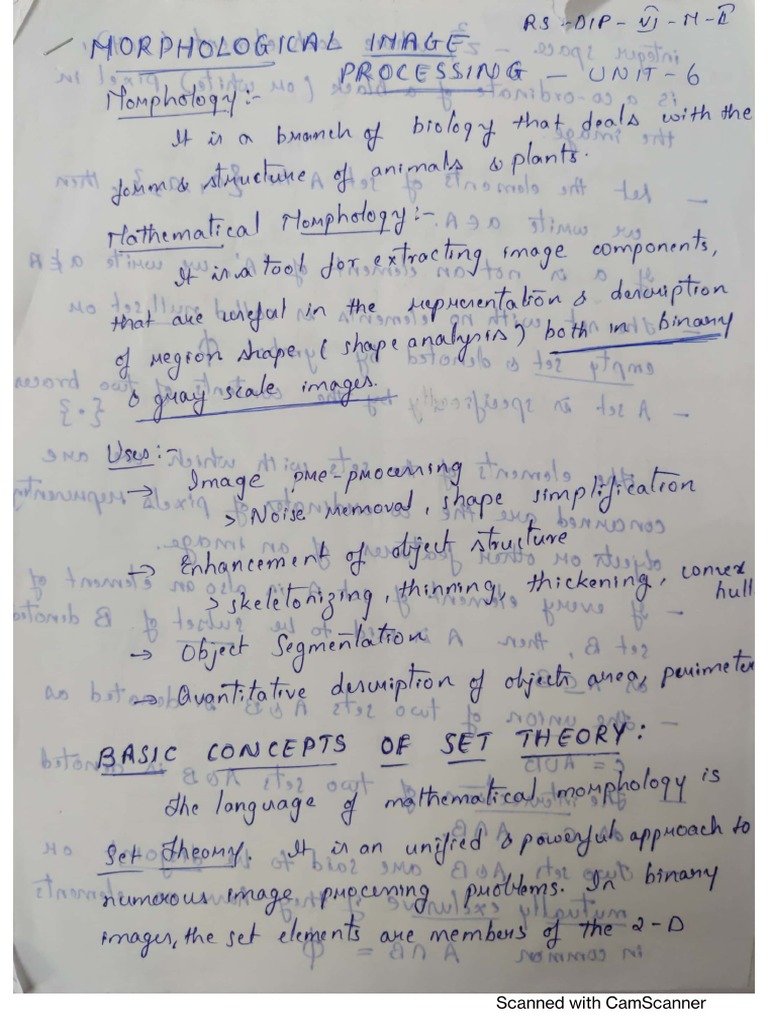 RS-DIP-VI-M-II
MORPHOLOGICAL IMAGE
PROCESSING - UNIT-6
Morphology:-
It is a branch of biology that deals with the
form & structure of animals & plants.
Mathematical Morphology:-
It is a tool for extracting image components,
that are useful in the representation & description
of region shape (shape analysis) both in binary
& gray scale images.
Uses:-
→ Image pre-processing
> Noise removal, shape simplification
→ Enhancement of object structure
> skeletonizing, thinning, thickening, convex
hull
→ Object Segmentation
→ Quantitative description of objects area, perimeter
BASIC CONCEPTS OF SET THEORY:
The language of mathematical morphology is
Set Theory. It is an unified & powerful approach to
numerous image processing problems. In binary
images, the set elements are members of the 2-D
Scanned with CamScanner